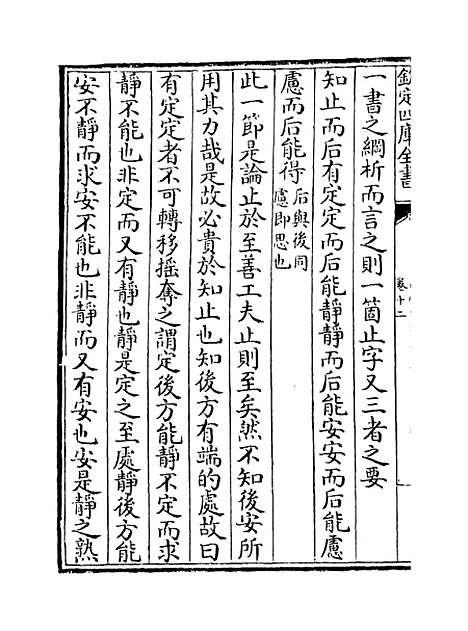 欽定四庫全書
卷十二
一書之綱析而言之則一箇止字又三者之要
知止而后有定定而后能靜靜而后能安安而后能慮
慮而后能得后與後同
慮即思也
此一節是論止於至善工夫止則至矣然不知後安所
用其力哉是故必貴於知止也知後方有端的處故曰
有定定者不可轉移搖奪之謂定後方能靜不定而求
靜不能也非定而又有靜也靜是定之至處靜後方能
安不靜而求安不能也非靜而又有安也安是靜之熟